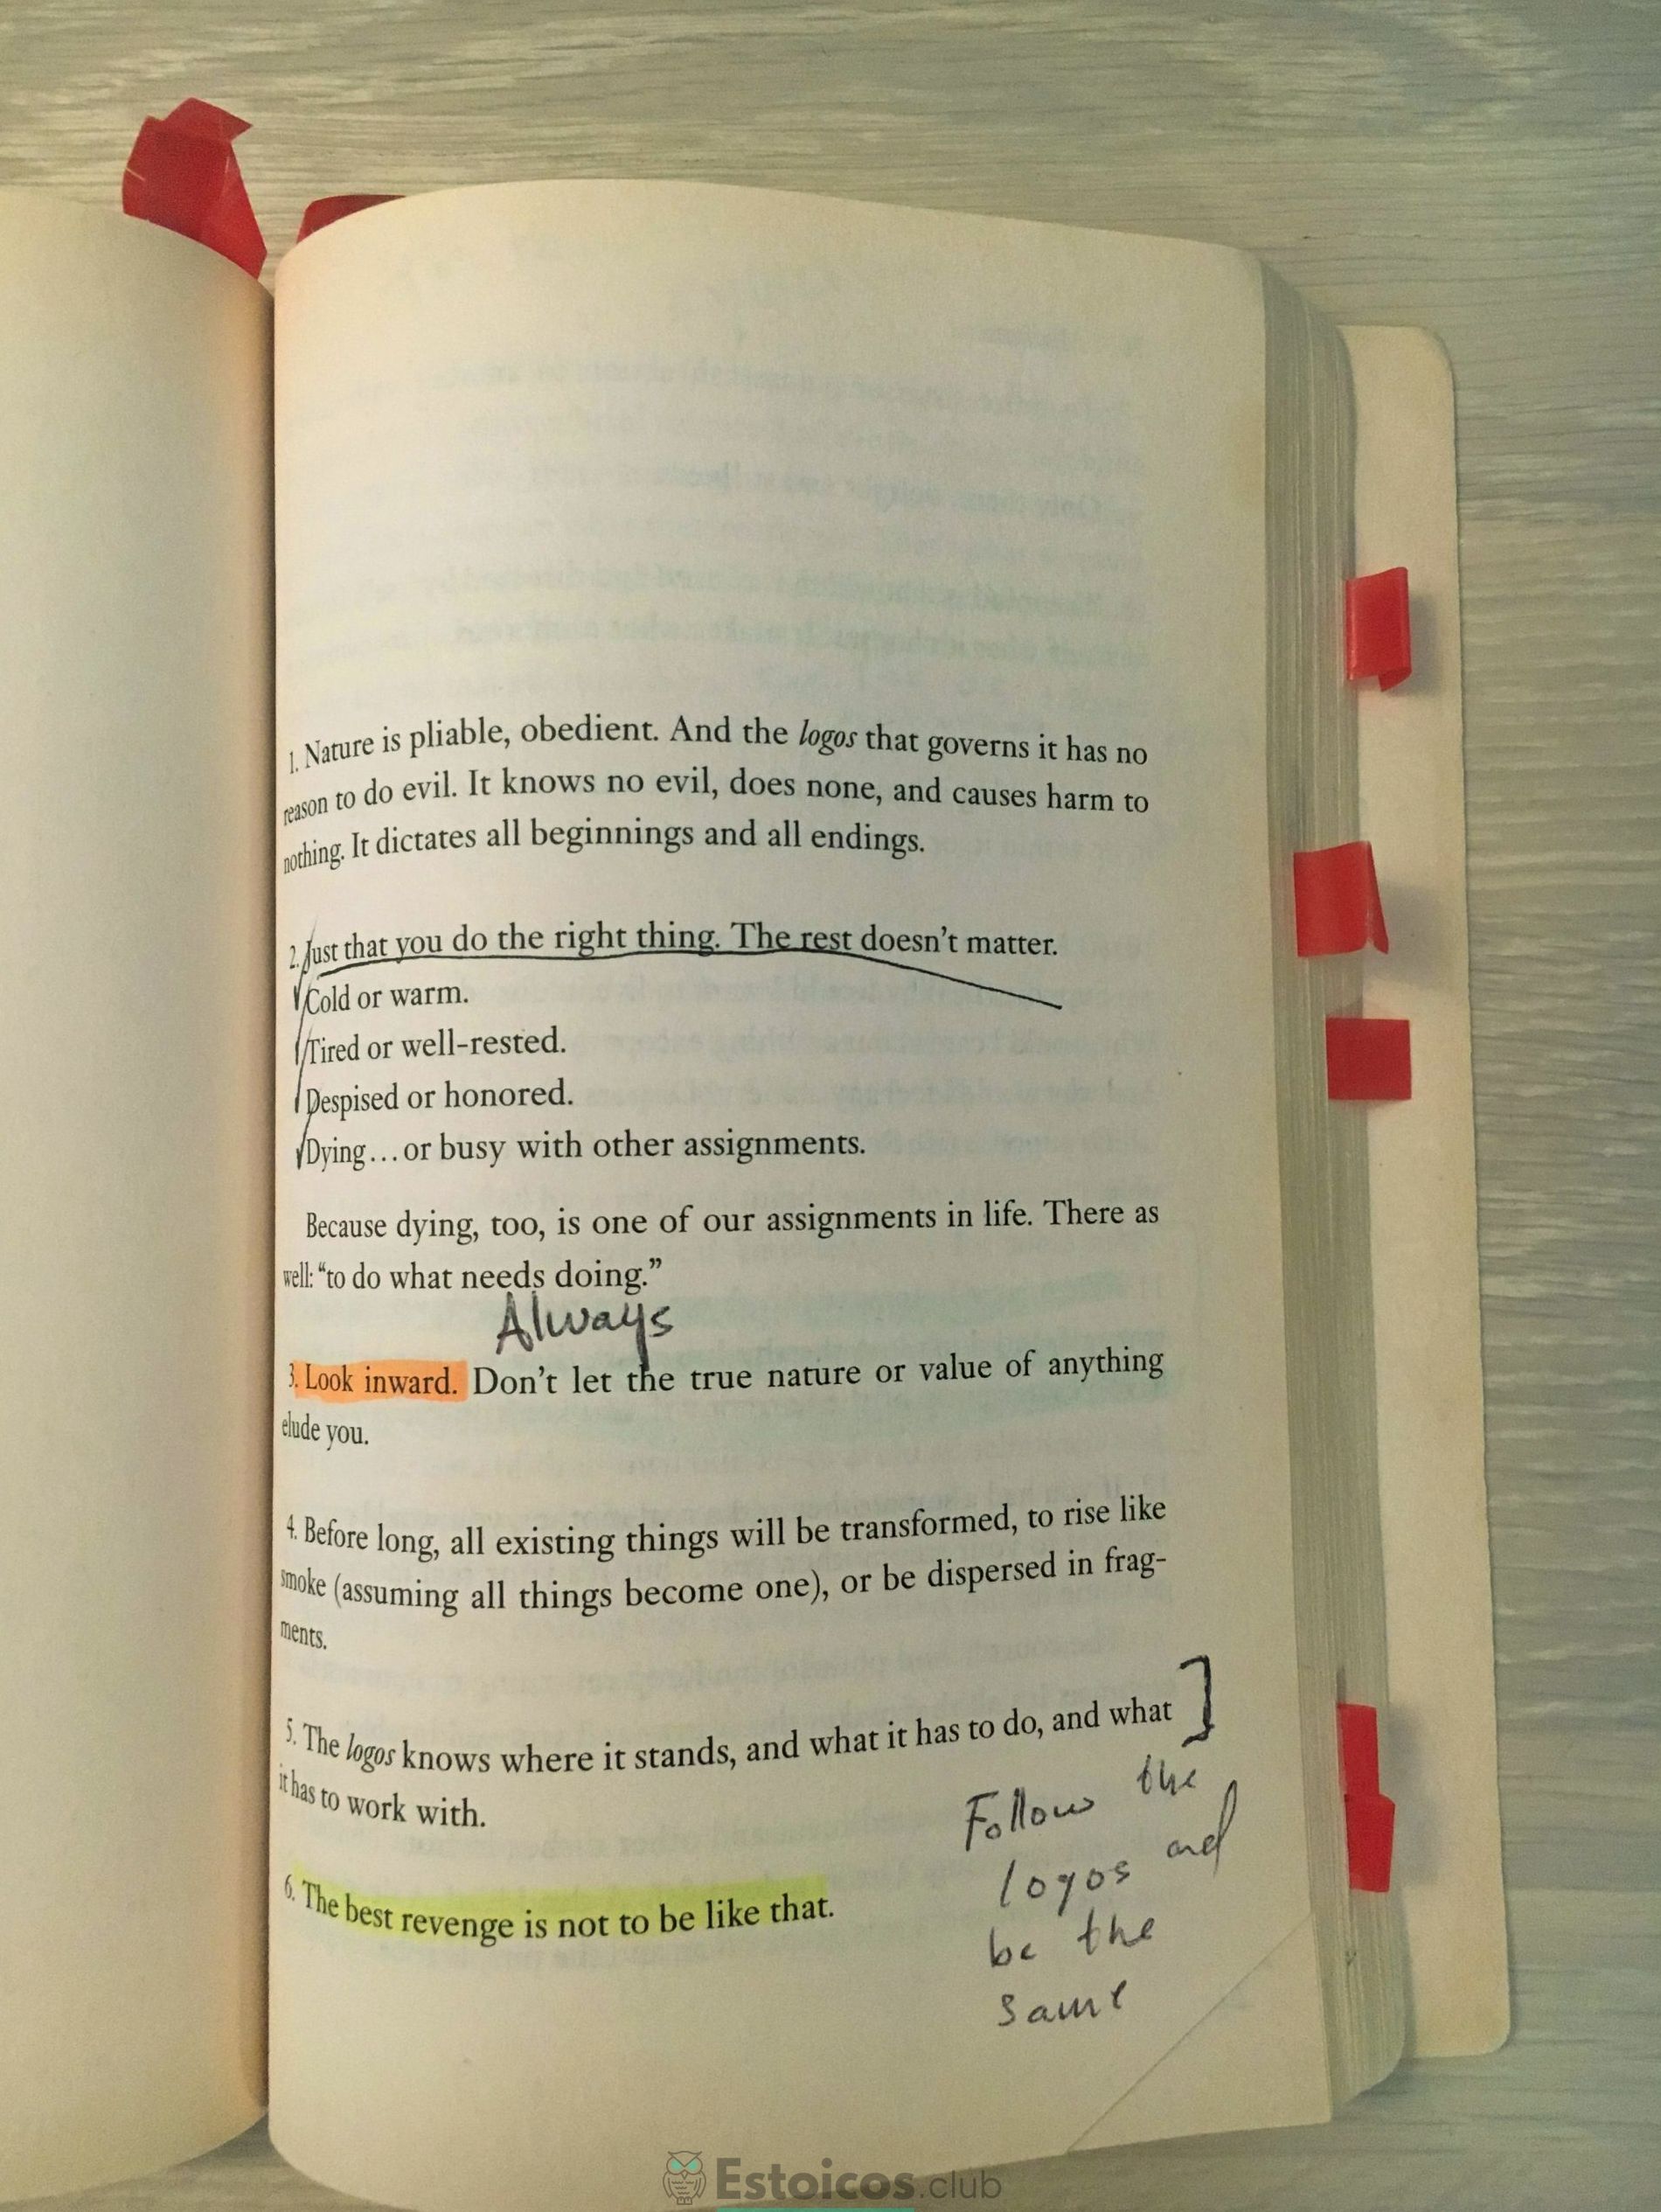 1. Nature is pliable, obedient. And the logos that governs it has no
reason to do evil. It knows no evil, does none, and causes harm to
nothing. It dictates all beginnings and all endings.
2. Just that you do the right thing. The rest doesn't matter.
Cold or warm.
Tired or well-rested.
Despised or honored.
Dying...or busy with other assignments.
Because dying, too, is one of our assignments in life. There as
well: “to do what needs doing.”
Always
3. Look inward. Don't let the true nature or value of anything
elude you.
4. Before long, all existing things will be transformed, to rise like
smoke (assuming all things become one), or be dispersed in frag-
ments.
5. The logos knows where it stands, and what it has to do, and what
it has to work with.
Follow the
logos and
be the
same
6. The best revenge is not to be like that.
Estoicos.club